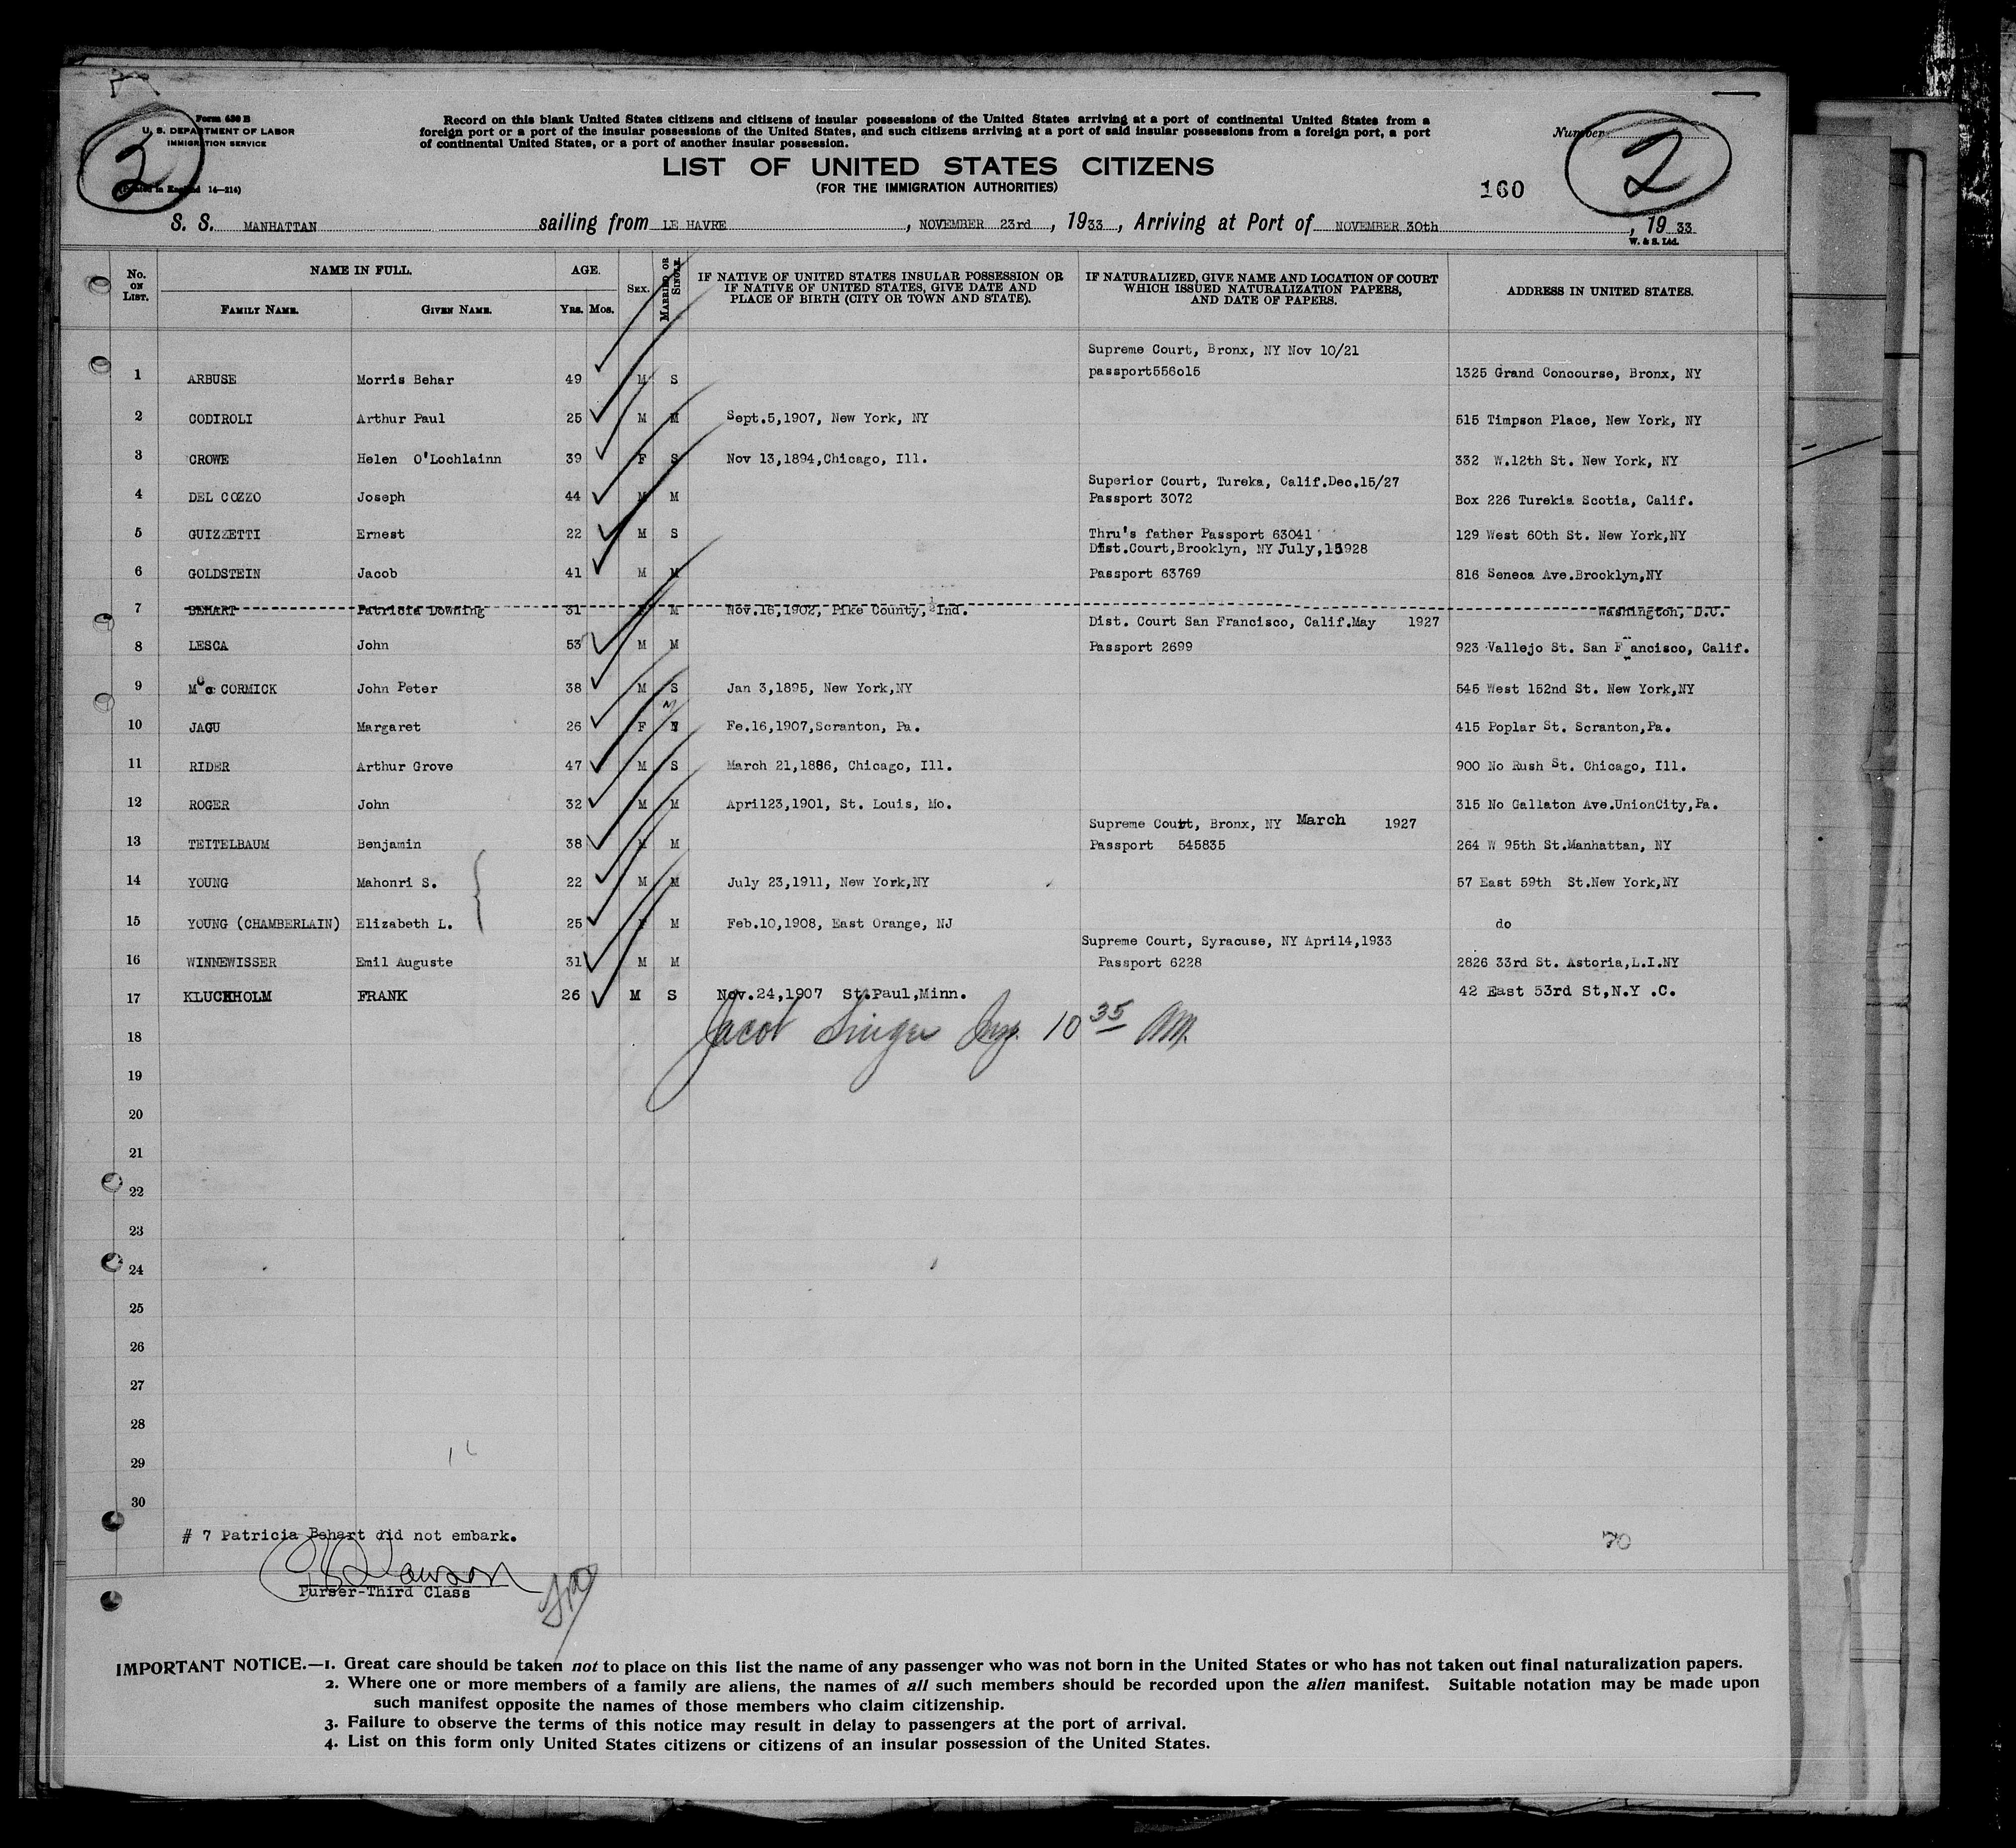 Form 630 B
U. S. DEPARTMENT OF LABOR
IMMIGRATION SERVICE
(Printed in England 14—214)
2
Record on this blank United States citizens and citizens of insular possessions of the United States arriving at a port of continental United States from a
foreign port or a port of the insular possessions of the United States, and such citizens arriving at a port of said insular possessions from a foreign port, a port
of continental United States, or a port of another insular possession.
LIST OF UNITED STATES CITIZENS
(FOR THE IMMIGRATION AUTHORITIES)
160
Number
2
S. S. MANHATTAN sailing from LE HAVRE, NOVEMBER 23rd, 1933, Arriving at Port of NOVEMBER 30th, 1933
W. & S. Ltd.
No. ON LIST. NAME IN FULL. FAMILY NAME. GIVEN NAME. AGE. YRS. MOS. SEX. MARRIED OR SINGLE. IF NATIVE OF UNITED STATES INSULAR POSSESSION OR IF NATIVE OF UNITED STATES, GIVE DATE AND PLACE OF BIRTH (CITY OR TOWN AND STATE). IF NATURALIZED, GIVE NAME AND LOCATION OF COURT WHICH ISSUED NATURALIZATION PAPERS, AND DATE OF PAPERS. ADDRESS IN UNITED STATES.
Supreme Court, Bronx, NY Nov 10/21
1 ARBUSE Morris Behar 49 M S passport556o15 1325 Grand Concourse, Bronx, NY
2 CODIROLI Arthur Paul 25 M M Sept.5,1907, New York, NY 515 Timpson Place, New York, NY
3 CROWE Helen O'Lochlainn 39 F S Nov 13,1894,Chicago, Ill. 332 W.12th St. New York, NY
Superior Court, Tureka, Calif.Dec.15/27
4 DEL COZZO Joseph 44 M M Passport 3072 Box 226 Turekia Scotia, Calif.
5 GUIZZETTI Ernest 22 M S Thru's father Passport 63041 129 West 60th St. New York,NY
Dist.Court,Brooklyn, NY July,151928
6 GOLDSTEIN Jacob 41 M M Passport 63769 816 Seneca Ave.Brooklyn,NY
7 BEHART Patricia Downing 31 F M Nov.16,1902, Pike County, Ind. Washington, D.C.
Dist. Court San Francisco, Calif.May 1927
8 LESCA John 53 M M Passport 2699 923 Vallejo St. San F ancisco, Calif.
9 Mc CORMICK John Peter 38 M S Jan 3,1895, New York,NY 545 West 152nd St. New York,NY
10 JAGU Margaret 26 F M Fe.16,1907,Scranton, Pa. 415 Poplar St. Scranton,Pa.
11 RIDER Arthur Grove 47 M S March 21,1886, Chicago, Ill. 900 No Rush St. Chicago, Ill.
12 ROGER John 32 M M April23,1901, St. Louis, Mo. 315 No Gallaton Ave.UnionCity,Pa.
Supreme Court, Bronx, NY March 1927
13 TEITELBAUM Benjamin 38 M M Passport 545835 264 W 95th St.Manhattan, NY
14 YOUNG Mahonri S. 22 M M July 23,1911, New York,NY 57 East 59th St.New York,NY
15 YOUNG (CHAMBERLAIN) Elizabeth L. 25 F M Feb.10,1908, East Orange, NJ do
Supreme Court, Syracuse, NY April4,1933
16 WINNEWISSER Emil Auguste 31 M M Passport 6228 2826 33rd St. Astoria,L.I.NY
17 KLUCKHOLM FRANK 26 M S Nov.24,1907 St.Paul,Minn. 42 East 53rd St,N.Y .C.
18 Jacob Singer Insp. 10 35 AM.
19
20
21
22
23
24
25
26
27
28
29
30
# 7 Patricia Behart did not embark.
70
Purser-Third Class
IMPORTANT NOTICE.—1. Great care should be taken not to place on this list the name of any passenger who was not born in the United States or who has not taken out final naturalization papers.
2. Where one or more members of a family are aliens, the names of all such members should be recorded upon the alien manifest. Suitable notation may be made upon
such manifest opposite the names of those members who claim citizenship.
3. Failure to observe the terms of this notice may result in delay to passengers at the port of arrival.
4. List on this form only United States citizens or citizens of an insular possession of the United States.